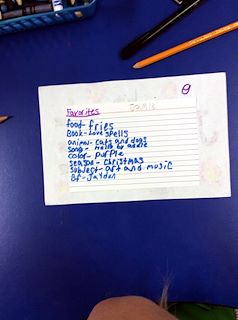 Jamie
Favorites
food- fries
Book- Love spells
animal- cats and dogs
song- Hello by adele
color- purple
season- christmas
subject- art and music
Bf- Jayden